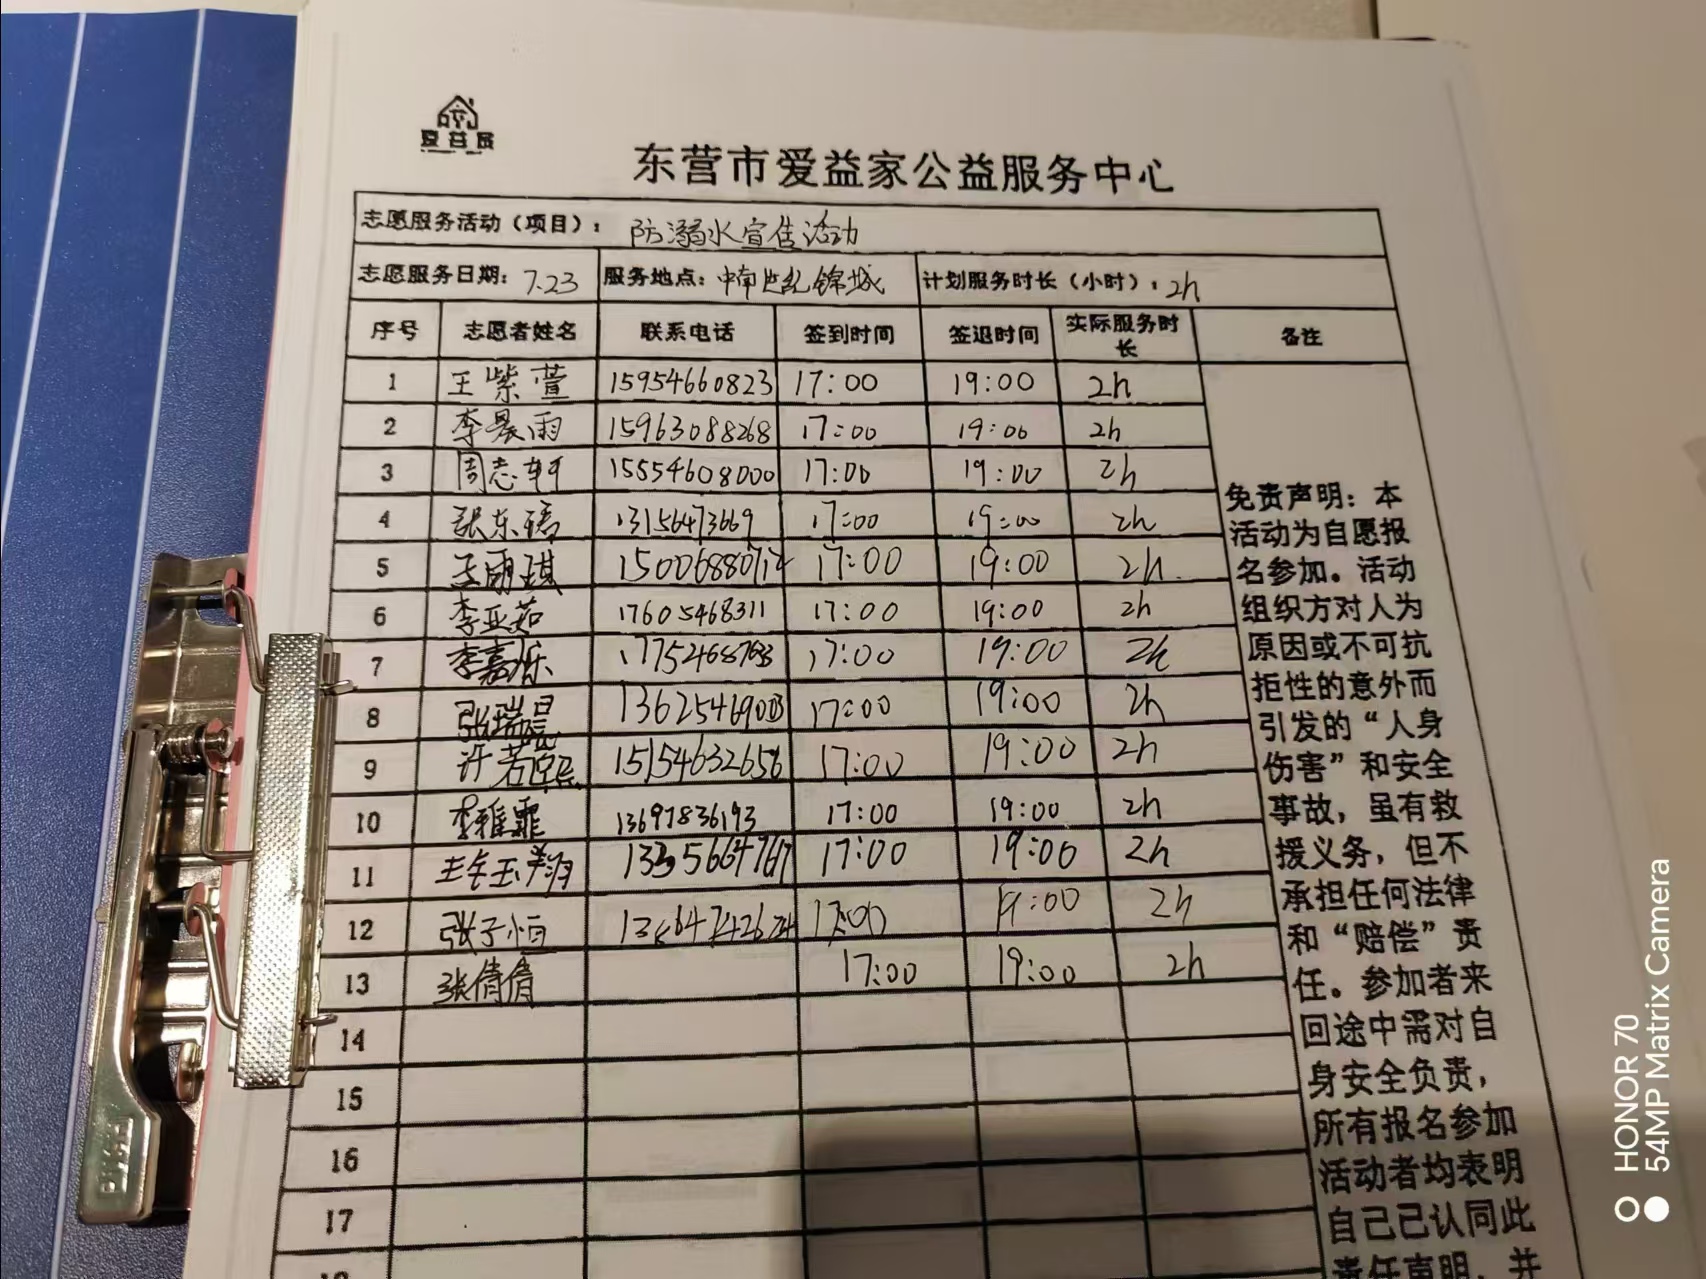 爱益家
东营市爱益家公益服务中心
志愿服务活动（项目）： 防溺水宣传活动
志愿服务日期： 7.23 服务地点： 锦城 计划服务时长（小时）： 2h
序号 志愿者姓名 联系电话 签到时间 签退时间 实际服务时长 备注
1 王紫萱 15954660823 17:00 19:00 2h
2 李晨雨 15963088268 17:00 19:00 2h
3 周志轩 15554608000 17:00 19:00 2h
4 张东 13156473669 17:00 19:00 2h
5 王雨琪 15006880712 17:00 19:00 2h
6 李亚茹 17605468311 17:00 19:00 2h
7 李嘉乐 17:00 19:00 2h
8 张瑞晨 17:00 19:00 2h
9 许若 15154632656 17:00 19:00 2h
10 李雅霏 13697836193 17:00 19:00 2h
11 17:00 19:00 2h
12 张子恒 17:00 19:00 2h
13 张倩倩 17:00 19:00 2h
14
15
16
17
免责声明：本
活动为自愿报
名参加。活动
组织方对人为
原因或不可抗
拒性的意外而
引发的“人身
伤害”和安全
事故，虽有救
援义务，但不
承担任何法律
和“赔偿”责
任。参加者来
回途中需对自
身安全负责，
所有报名参加
活动者均表明
自己已认同此
责任声明，并
HONOR 70
54MP Matrix Camera